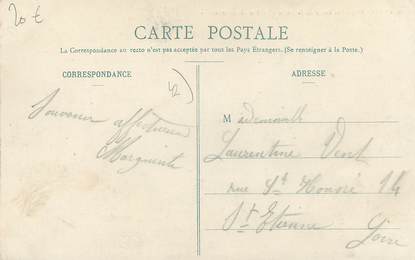 20 €
CARTE POSTALE
La Correspondance au recto n'est pas acceptée par tous les Pays Étrangers. (Se renseigner à la Poste.)
CORRESPONDANCE
ADRESSE
42
Souvenir affectueux
Marguerite
Mademoiselle
Laurentine Vent
rue St Honoré 14
St Etienne
Loire